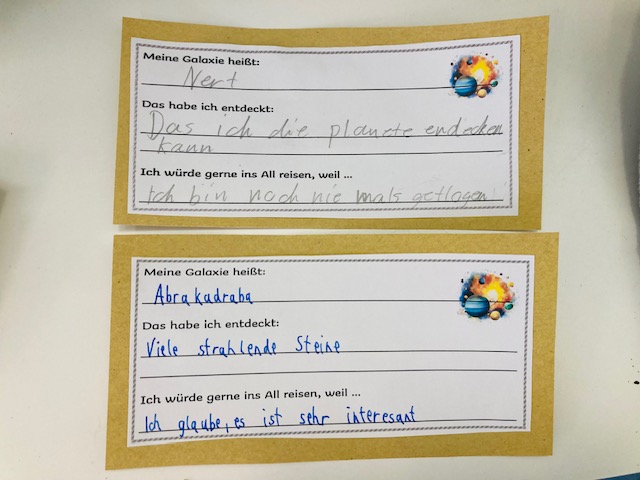 Meine Galaxie heißt:
Nert
Das habe ich entdeckt:
Das ich die planete endecken
kann
Ich würde gerne ins All reisen, weil ...
Ich bin noch nie mals geflogen!
Meine Galaxie heißt:
Abrakadraba
Das habe ich entdeckt:
Viele strahlende Steine
Ich würde gerne ins All reisen, weil ...
Ich glaube, es ist sehr interesant